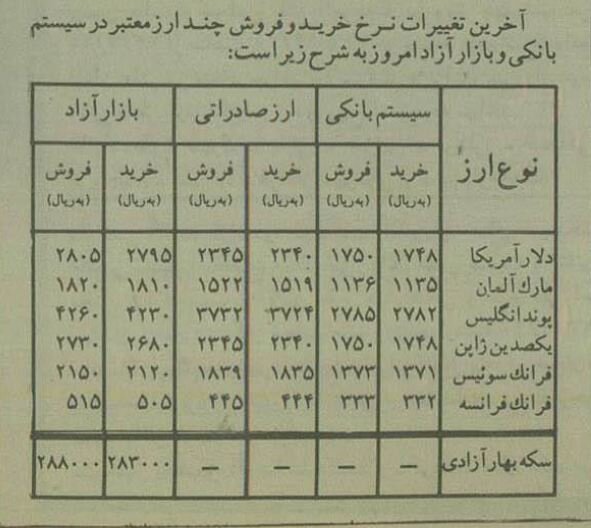 آخرین تغییرات نرخ خرید و فروش چند ارز معتبر در سیستم
بانکی و بازار آزاد امروز به شرح زیر است:
نوع ارز سیستم بانکی ارز صادراتی بازار آزاد
خرید فروش خرید فروش خرید فروش
(به ریال) (به ریال) (به ریال) (به ریال) (به ریال) (به ریال)
دلار آمریکا ۱۷۴۸ ۱۷۵۰ ۲۳۴۰ ۲۳۴۵ ۲۷۹۵ ۲۸۰۵
مارک آلمان ۱۱۳۵ ۱۱۳۶ ۱۵۱۹ ۱۵۲۲ ۱۸۱۰ ۱۸۲۰
پوند انگلیس ۲۷۸۲ ۲۷۸۵ ۳۷۲۴ ۳۷۳۲ ۴۲۳۰ ۴۲۶۰
یکصد ین ژاپن ۱۷۴۸ ۱۷۵۰ ۲۳۴۰ ۲۳۴۵ ۲۶۸۰ ۲۷۳۰
فرانک سوئیس ۱۳۷۱ ۱۳۷۳ ۱۸۳۵ ۱۸۳۹ ۲۱۲۰ ۲۱۵۰
فرانک فرانسه ۳۳۲ ۳۳۳ ۴۴۴ ۴۴۵ ۵۰۵ ۵۱۵
سکه بهار آزادی — — — — ۲۸۳۰۰۰ ۲۸۸۰۰۰